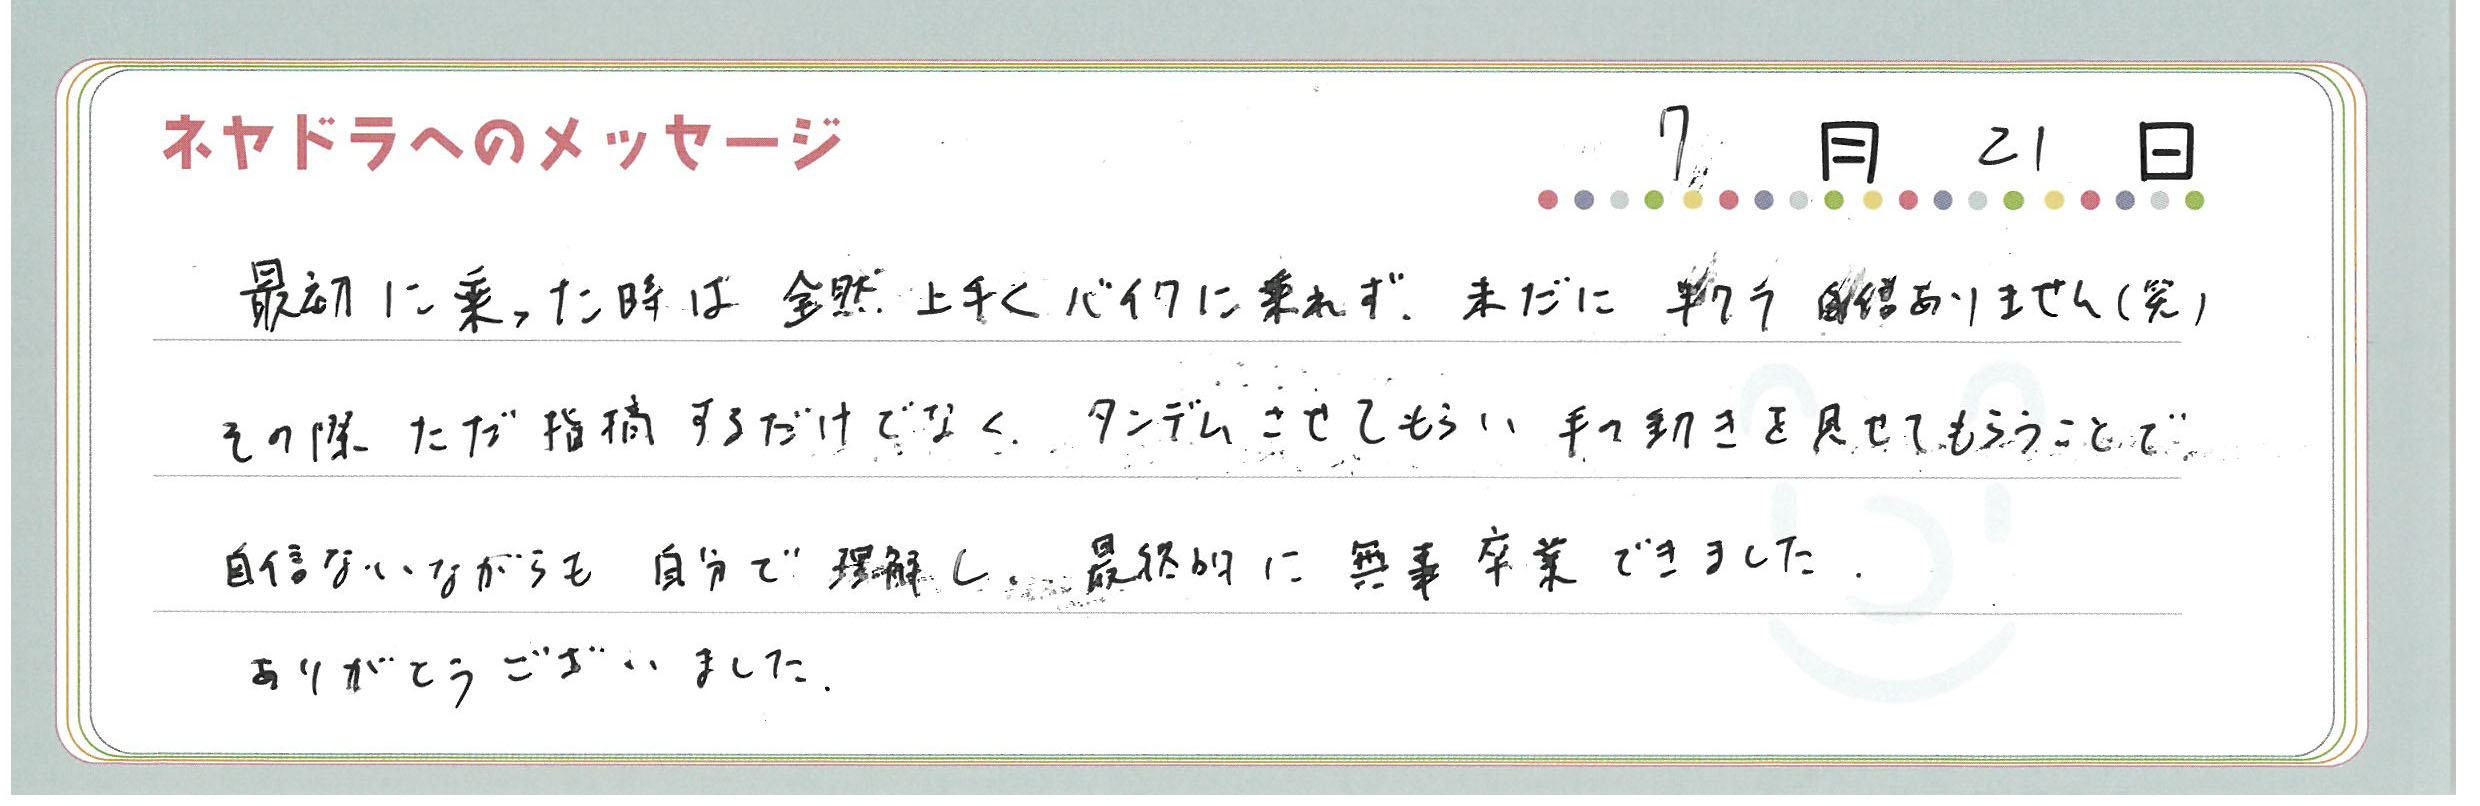 ネヤドラへのメッセージ
7月21日
最初に乗った時は全然上手くバイクに乗れず、未だに 自信ありません(笑)
その際ただ指摘するだけでなく、タンデムさせてもらい手の動きを見せてもらうことで
自信ないながらも自分で理解し、最終的に無事卒業できました.
ありがとうございました.